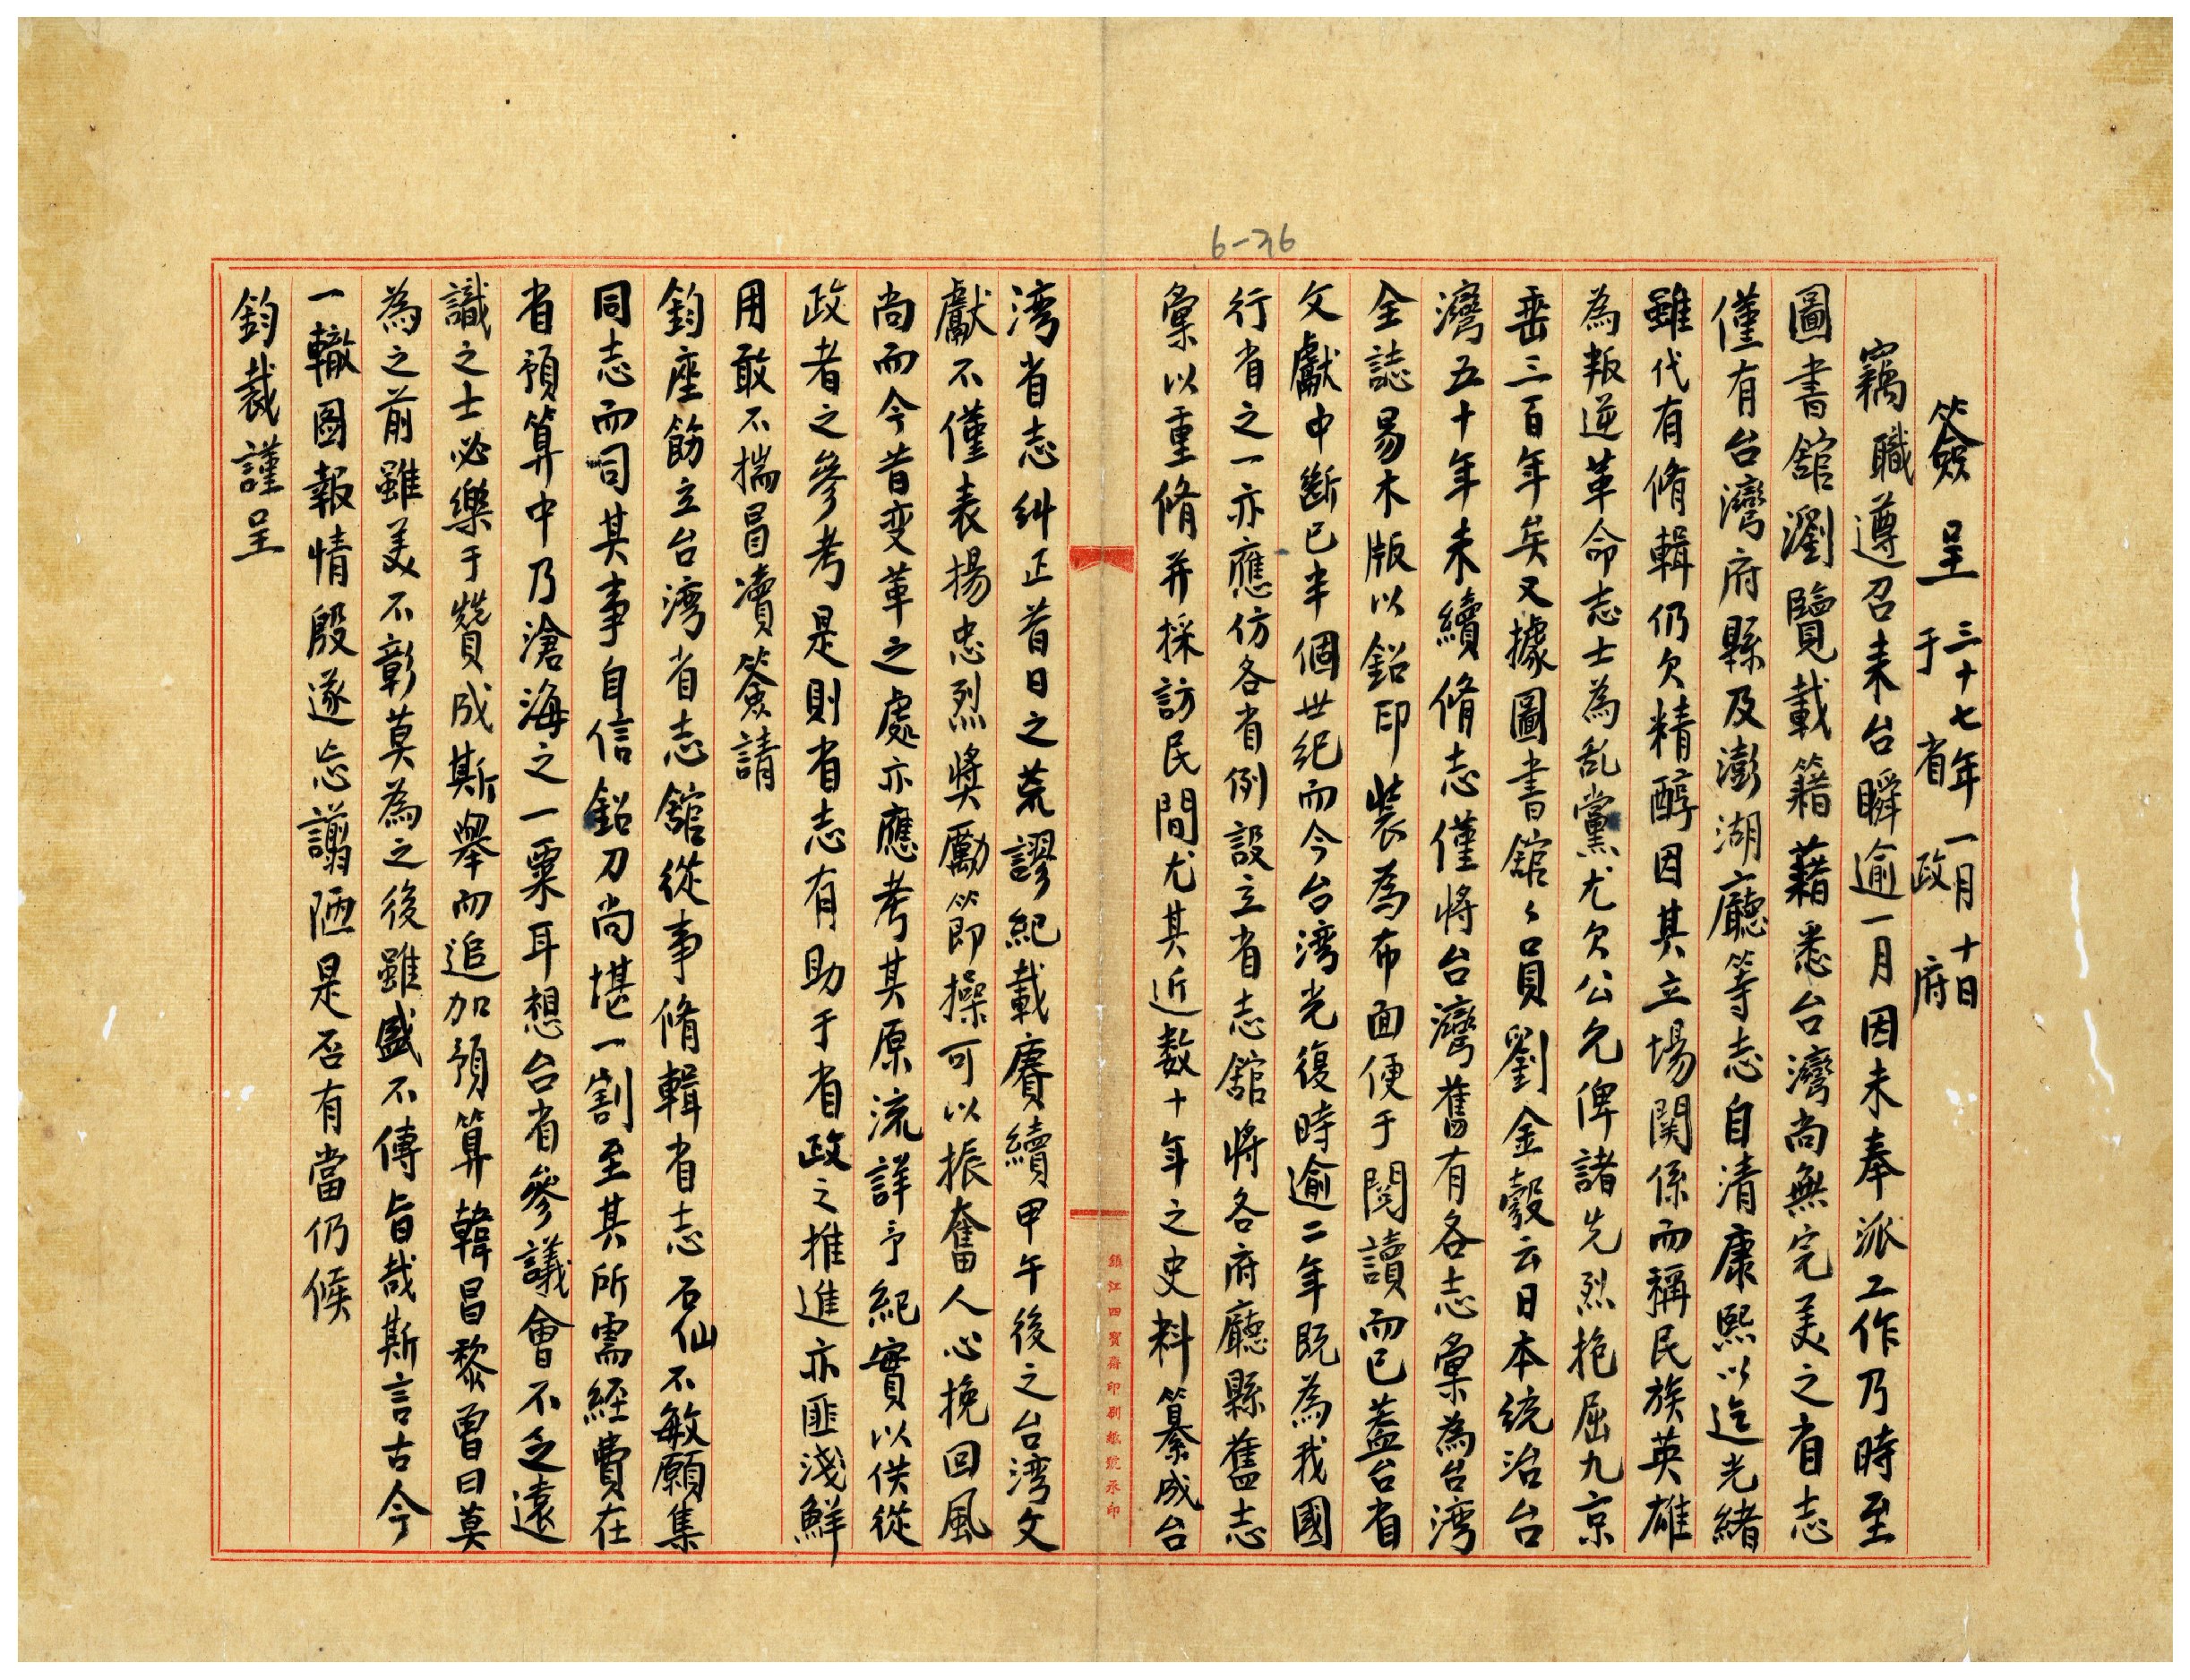 6-36
簽呈 三十七年一月十日
于省政府
竊職遵召來台瞬逾一月因未奉派工作乃時至
圖書舘瀏覽載籍藉悉台灣尚無完美之省志
僅有台灣府縣及澎湖廳等志自清康熙以迄光緒
雖代有脩輯仍欠精醇因其立場関係而稱民族英雄
為叛逆革命志士為乱黨尤欠公允俾諸先烈抱屈九京
垂三百年矣又據圖書舘々員劉金瑴云日本統治台
灣五十年未續脩志僅將台灣舊有各志彙為台湾
全誌易木版以鉛印装為布面便于閱讀而已蓋台省
文獻中斷已半個世紀而今台湾光復時逾二年既為我國
行省之一亦應仿各省例設立省志舘將各府廳縣舊志
彙以重脩并採訪民間尤其近数十年之史料纂成台
湾省志糾正昔日之荒謬紀載賡續甲午後之台湾文
獻不僅表揚忠烈奬勵節操可以振奮人心挽回風
尚而今昔变革之處亦應考其原流詳予紀實以供從
政者之參考是則省志有助于省政之推進亦匪淺鮮
用敢不揣冒瀆簽請
鈞座飭立台湾省志舘從事脩輯省志石仙不敏願集
同志而司其事自信鉛刀尚堪一割至其所需經費在
省預算中乃滄海之一粟耳想台省參議會不乏遠
識之士必樂于贊成斯舉而追加預算韓昌黎曾曰莫
為之前雖美不彰莫為之後雖盛不傳旨哉斯言古今
一轍圖報情殷遂忘謭陋是否有當仍候
鈞裁謹呈
鎮江四寳齋印刷紙號承印